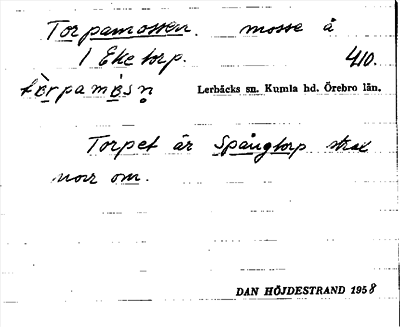 Torpamossen. mosse å
1 Eke torp. 410.
Lerbäcks sn. Kumla hd. Örebro län.
Torpet är Spångtorp strax
norr om.
DAN HÖJDESTRAND 1958